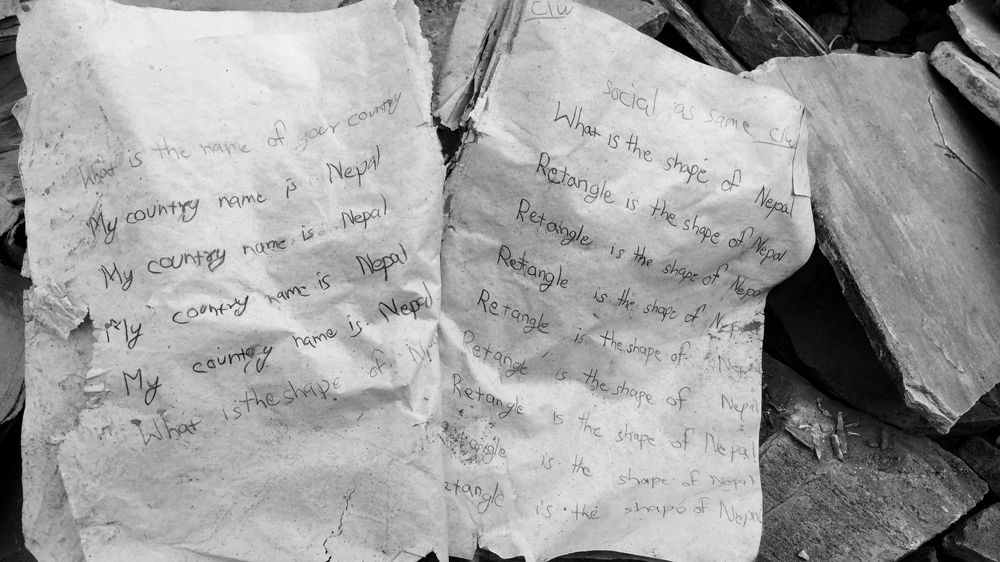 What is the name of your country
My country name is Nepal
My country name is Nepal
My country name is Nepal
My country name is Nepal
What is the shape of
c/w
social as same c/w
What is the shape of Nepal
Retangle is the shape of Nepal
Retangle is the shape of Nepal
Retangle is the shape of Nepal
Retangle is the shape of Nepal
Retangle is the shape of Nepal
Retangle is the shape of Nepal
etangle is the shape of Nepal
etangle is the shape of Nepal